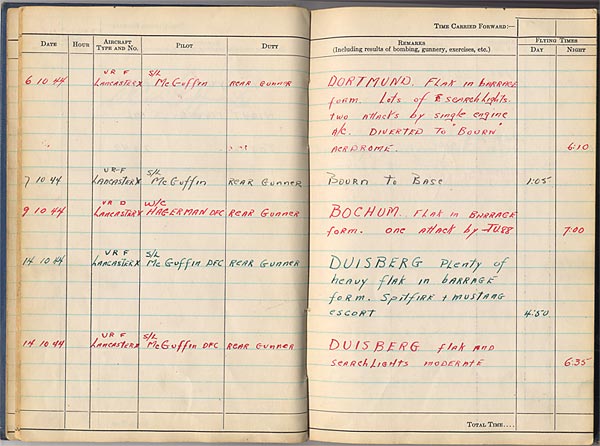 Time Carried Forward:—
Date Hour Aircraft Type and No. Pilot Duty Remarks (Including results of bombing, gunnery, exercises, etc.) Flying Times Day Night
VR F S/L
6 10 44 Lancaster X McGuffin Rear Gunner DORTMUND. Flak in barrage
form. Lots of searchlights.
two attacks by single engine
A/c. Diverted to "Bourn"
aerdrome. 6:10
VR-F S/L
7 10 44 Lancaster X McGuffin Rear Gunner Bourn to Base 1:05
VR D W/C
9 10 44 Lancaster X Hagerman DFC Rear Gunner BOCHUM. Flak in Barrage
form. one attack by JU88 7:00
VR F S/L
14 10 44 Lancaster X McGuffin DFC Rear Gunner DUISBERG Plenty of
heavy flak in barrage
form. Spitfire + mustang
escort 4:50
VR F S/L
14 10 44 Lancaster X McGuffin DFC Rear Gunner DUISBERG flak and
searchlights moderate 6:35
Total Time....